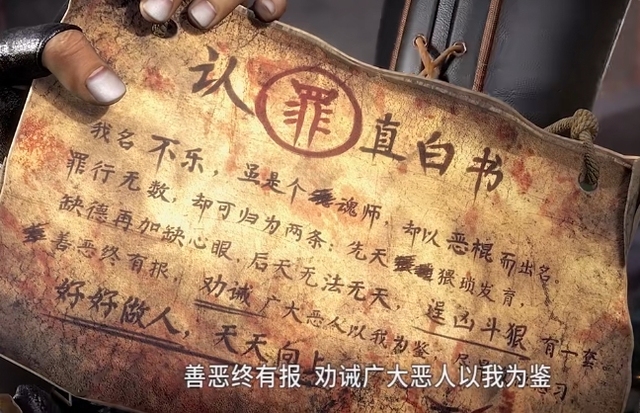 认罪直白书
我名不乐，虽是个魂师，却以恶棍而出名。
罪行无数，却可归为两条：先天猥琐发育，
缺德再加缺心眼，后天无法无天，逞凶斗狠有一套
善恶终有报，劝诫广大恶人以我为鉴，
好好做人，天天向上
善恶终有报 劝诫广大恶人以我为鉴